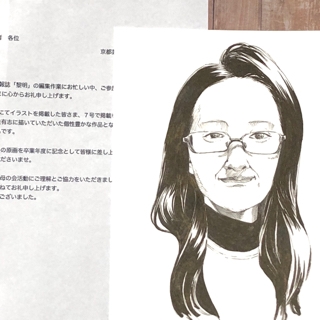 各位
京都
報誌「黎明」の編集作業にお忙しい中、ご参
に心からお礼申し上げます。
にてイラストを掲載した皆さま、７号で掲載
有志に描いていただいた個性豊かな作品とな
です。
の原画を卒業年度に記念として皆様に差し上
ださいませ。
母の会活動にご理解とご協力をいただきまし
ねてお礼申し上げます。
ございました。